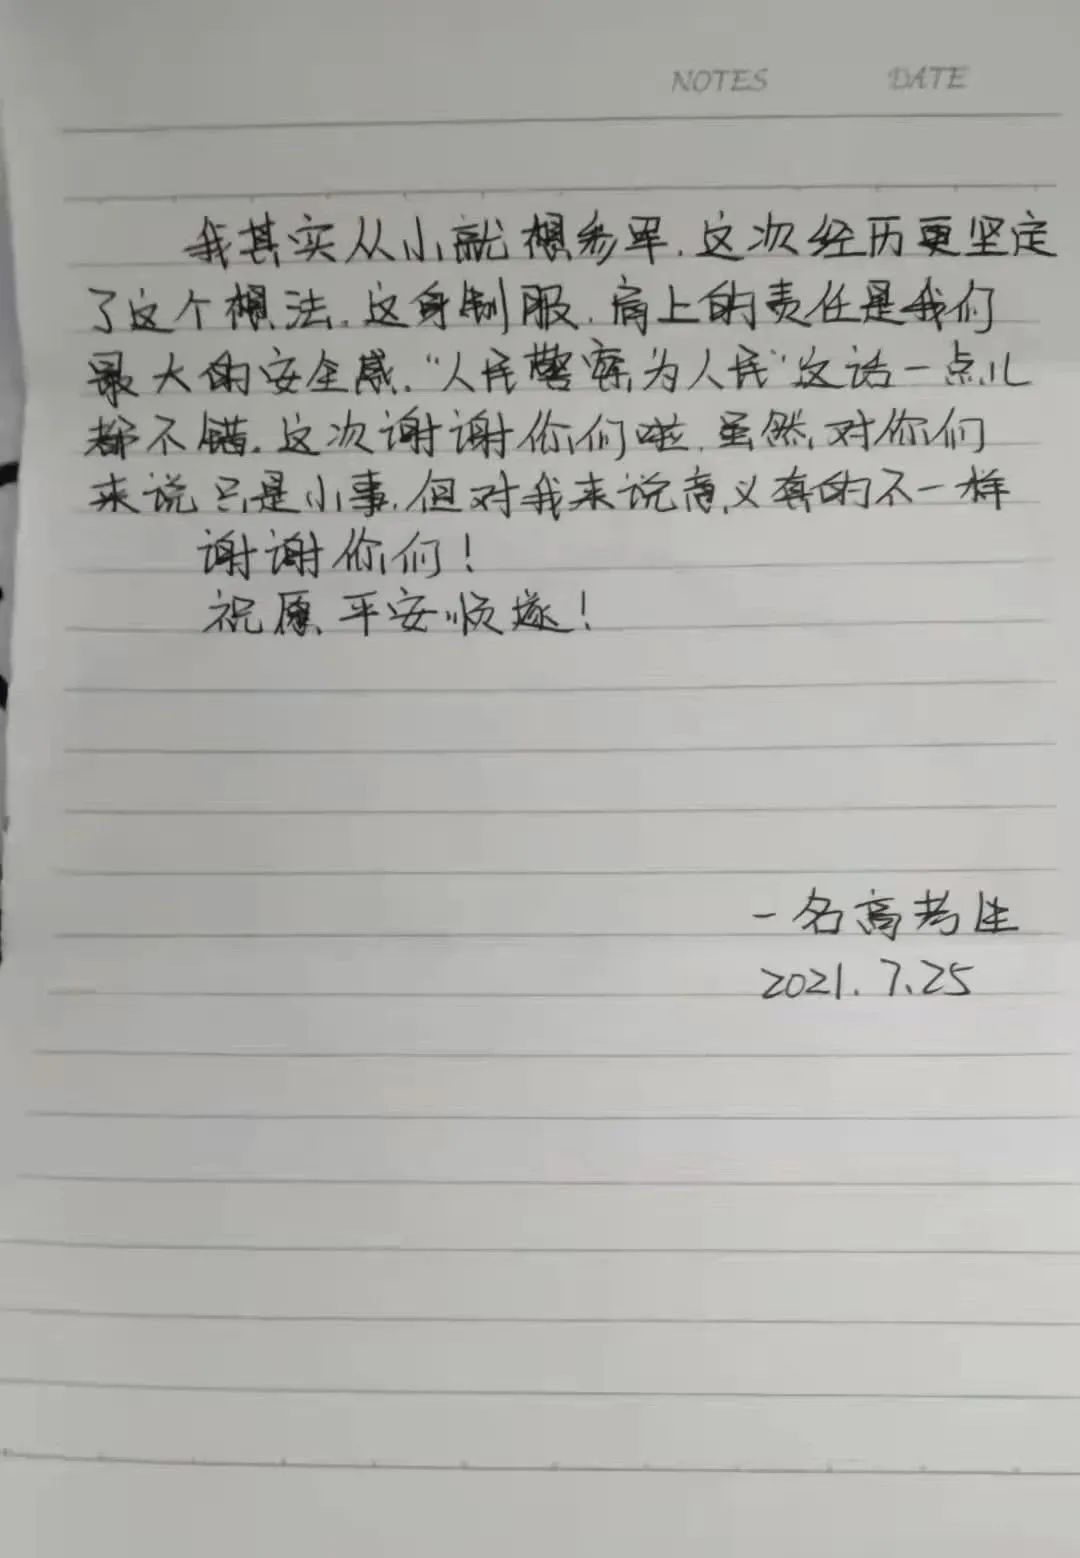 NOTES DATE
我其实从小就想参军.这次经历更坚定
了这个想法.这身制服.肩上的责任是我们
最大的安全感.“人民警察为人民”这话一点儿
都不错.这次谢谢你们啦.虽然对你们
来说只是小事.但对我来说意义真的不一样
谢谢你们！
祝愿平安顺遂！
一名高考生
2021.7.25